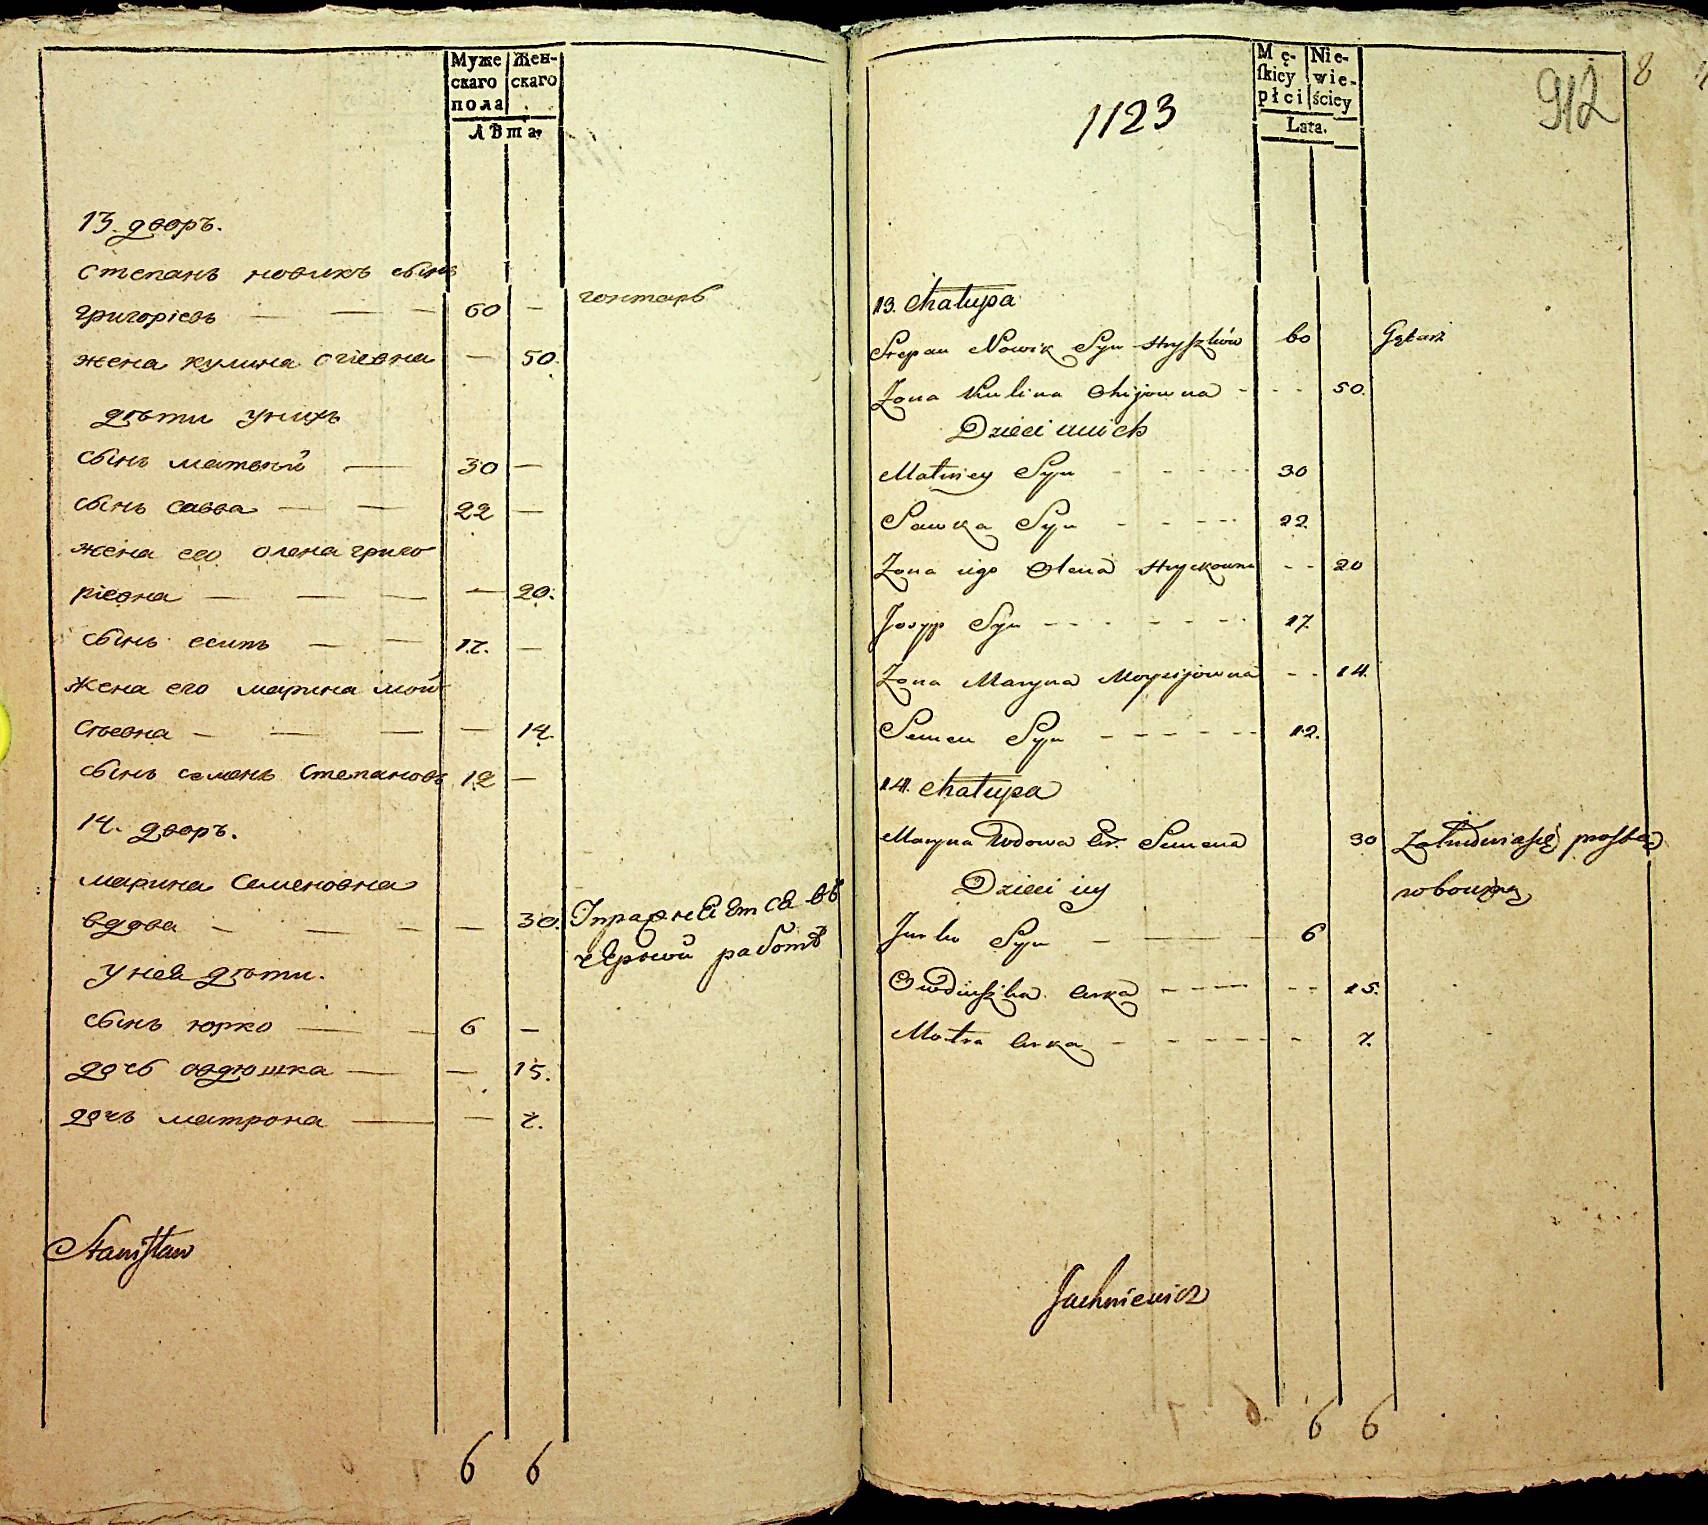 Муже
скаго
пола
Жен-
скаго
Лѣта.
13. дворъ.
Степанъ новикъ сынъ
григорiевъ — — — 60 —
гонтарь
жена кулина огiевна — 50.
дѣти унихъ
сынъ матвѣй — 30 —
сынъ савва — — 22 —
жена его олена григо
рiевна — — — — 20.
сынъ есипъ — — 17. —
жена его марина мой
сѣевна — — — — 14.
сынъ семенъ Степановъ 12 —
14. дворъ.
марина Семеновна
вдова — — — — 30.
Упражняется въ
черной работѣ
унея дѣти.
сынъ юрко — — 6 —
дочь овдюшка — — 15.
дочь матрона — — 7.
Stanisław
6 6
1123
Mę-
skiey
płci
Nie-
wie-
ściey
Lata.
912
8
13. Chałupa
Stepan Nowik Syn Hryszków 60
Żona Kulina Ohijowna - - - 50.
Dzieci unich
Matwiey Syn - - - - 30
Sawka Syn - - - - 22.
Żona iego Olena Hryckowna - - 20
Josyp Syn - - - - - - 17.
Żona Maryna Moysijowna - - 14.
Semen Syn - - - - - - 12.
14. Chałupa
Maryna Wdowa Cór. Semena 30
Zatrudnia się prostą
robocizną
Dzieci iey
Jurko Syn - — — 6
Owdiuszka Curka - - - - - - 15.
Motra Curka - - - - - - 7.
Juchniewicz
6 6